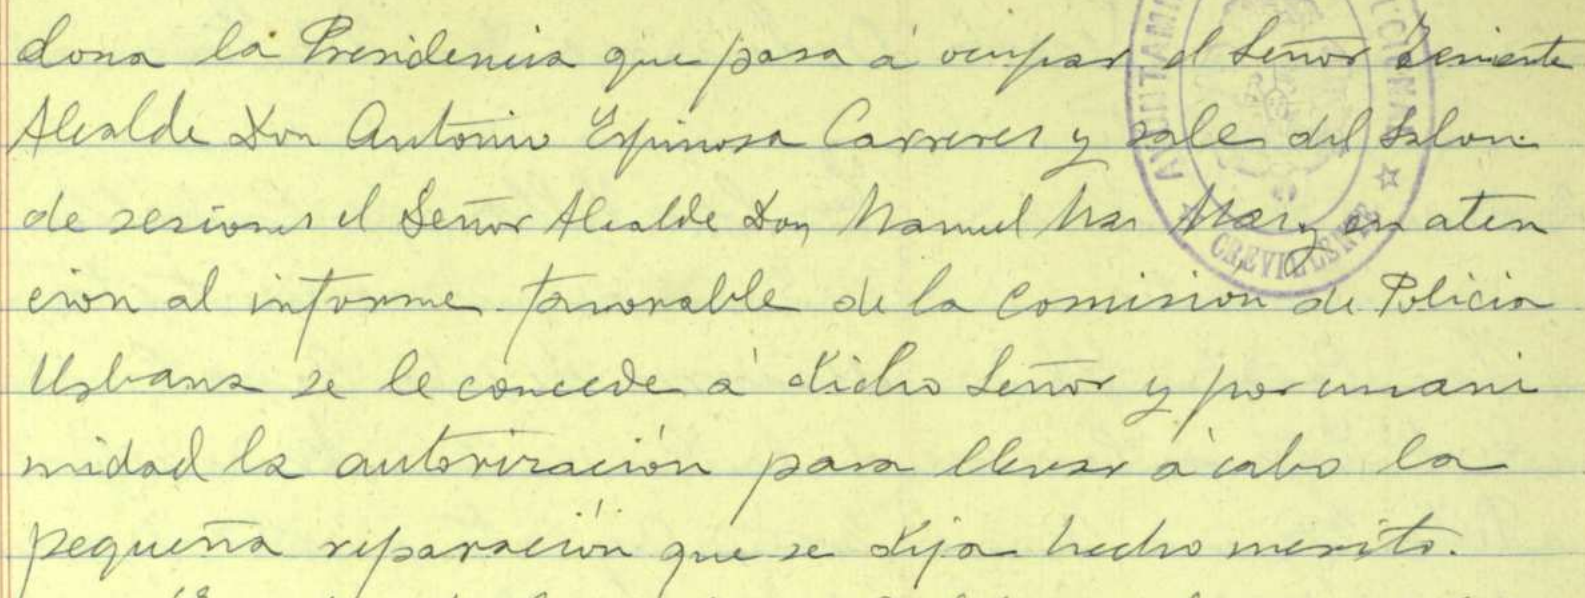 dona la Presidencia que pasa á ocupar el Señor Teniente
Alcalde Don Antonio Espinosa Carreres y sale del Salon
de sesiones el Señor Alcalde Don Manuel Mas Mas y en aten
cion al informe favorable de la Comision de Policia
Urbana se le concede á dicho Señor y por unani
midad la autorización para llevar á cabo la
pequeña reparación que se deja hecho merito.
CREVILLENTE